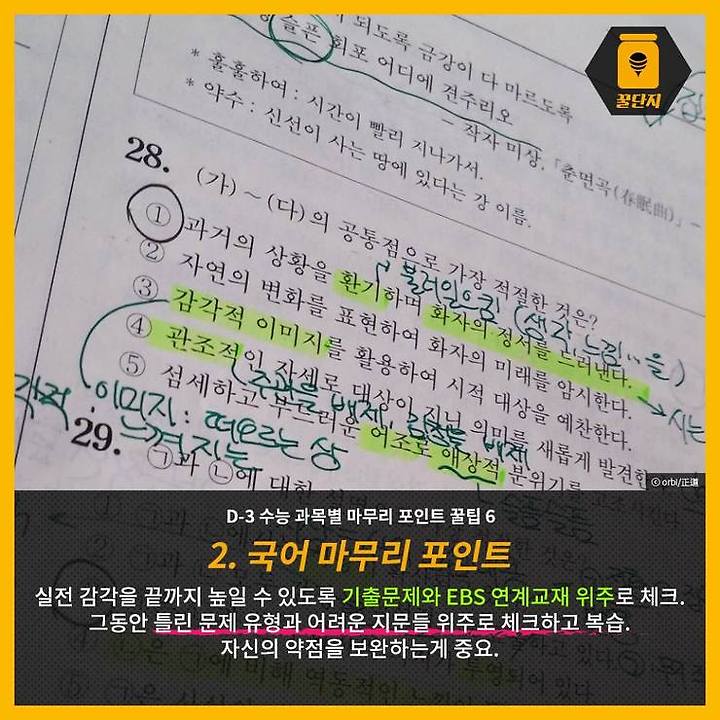 꿀단지
되도록 금강이 다 마르도록
슬픈 회포 어디에 견주리오
- 작자 미상, 「춘면곡(春眠曲)」 -
* 훌훌하여 : 시간이 빨리 지나가서.
* 약수 : 신선이 사는 땅에 있다는 강 이름.
28. (가) ~ (다)의 공통점으로 가장 적절한 것은?
불러일으킴 (생각, 느낌...을)
① 과거의 상황을 환기하며 화자의 정서를 드러낸다.
② 자연의 변화를 표현하여 화자의 미래를 암시한다.
③ 감각적 이미지를 활용하여 시적 대상을 예찬한다.
④ 관조적인 자세로 대상이 지닌 의미를 새롭게 발견한
⑤ 섬세하고 부드러운 어조로 애상적 분위기를
이미지 : 떠오르는 상
느껴지는
29. ㉠과 ㉡에 대한
ⓒ orbi/正道
D-3 수능 과목별 마무리 포인트 꿀팁 6
2. 국어 마무리 포인트
실전 감각을 끝까지 높일 수 있도록 기출문제와 EBS 연계교재 위주로 체크.
그동안 틀린 문제 유형과 어려운 지문들 위주로 체크하고 복습.
자신의 약점을 보완하는게 중요.